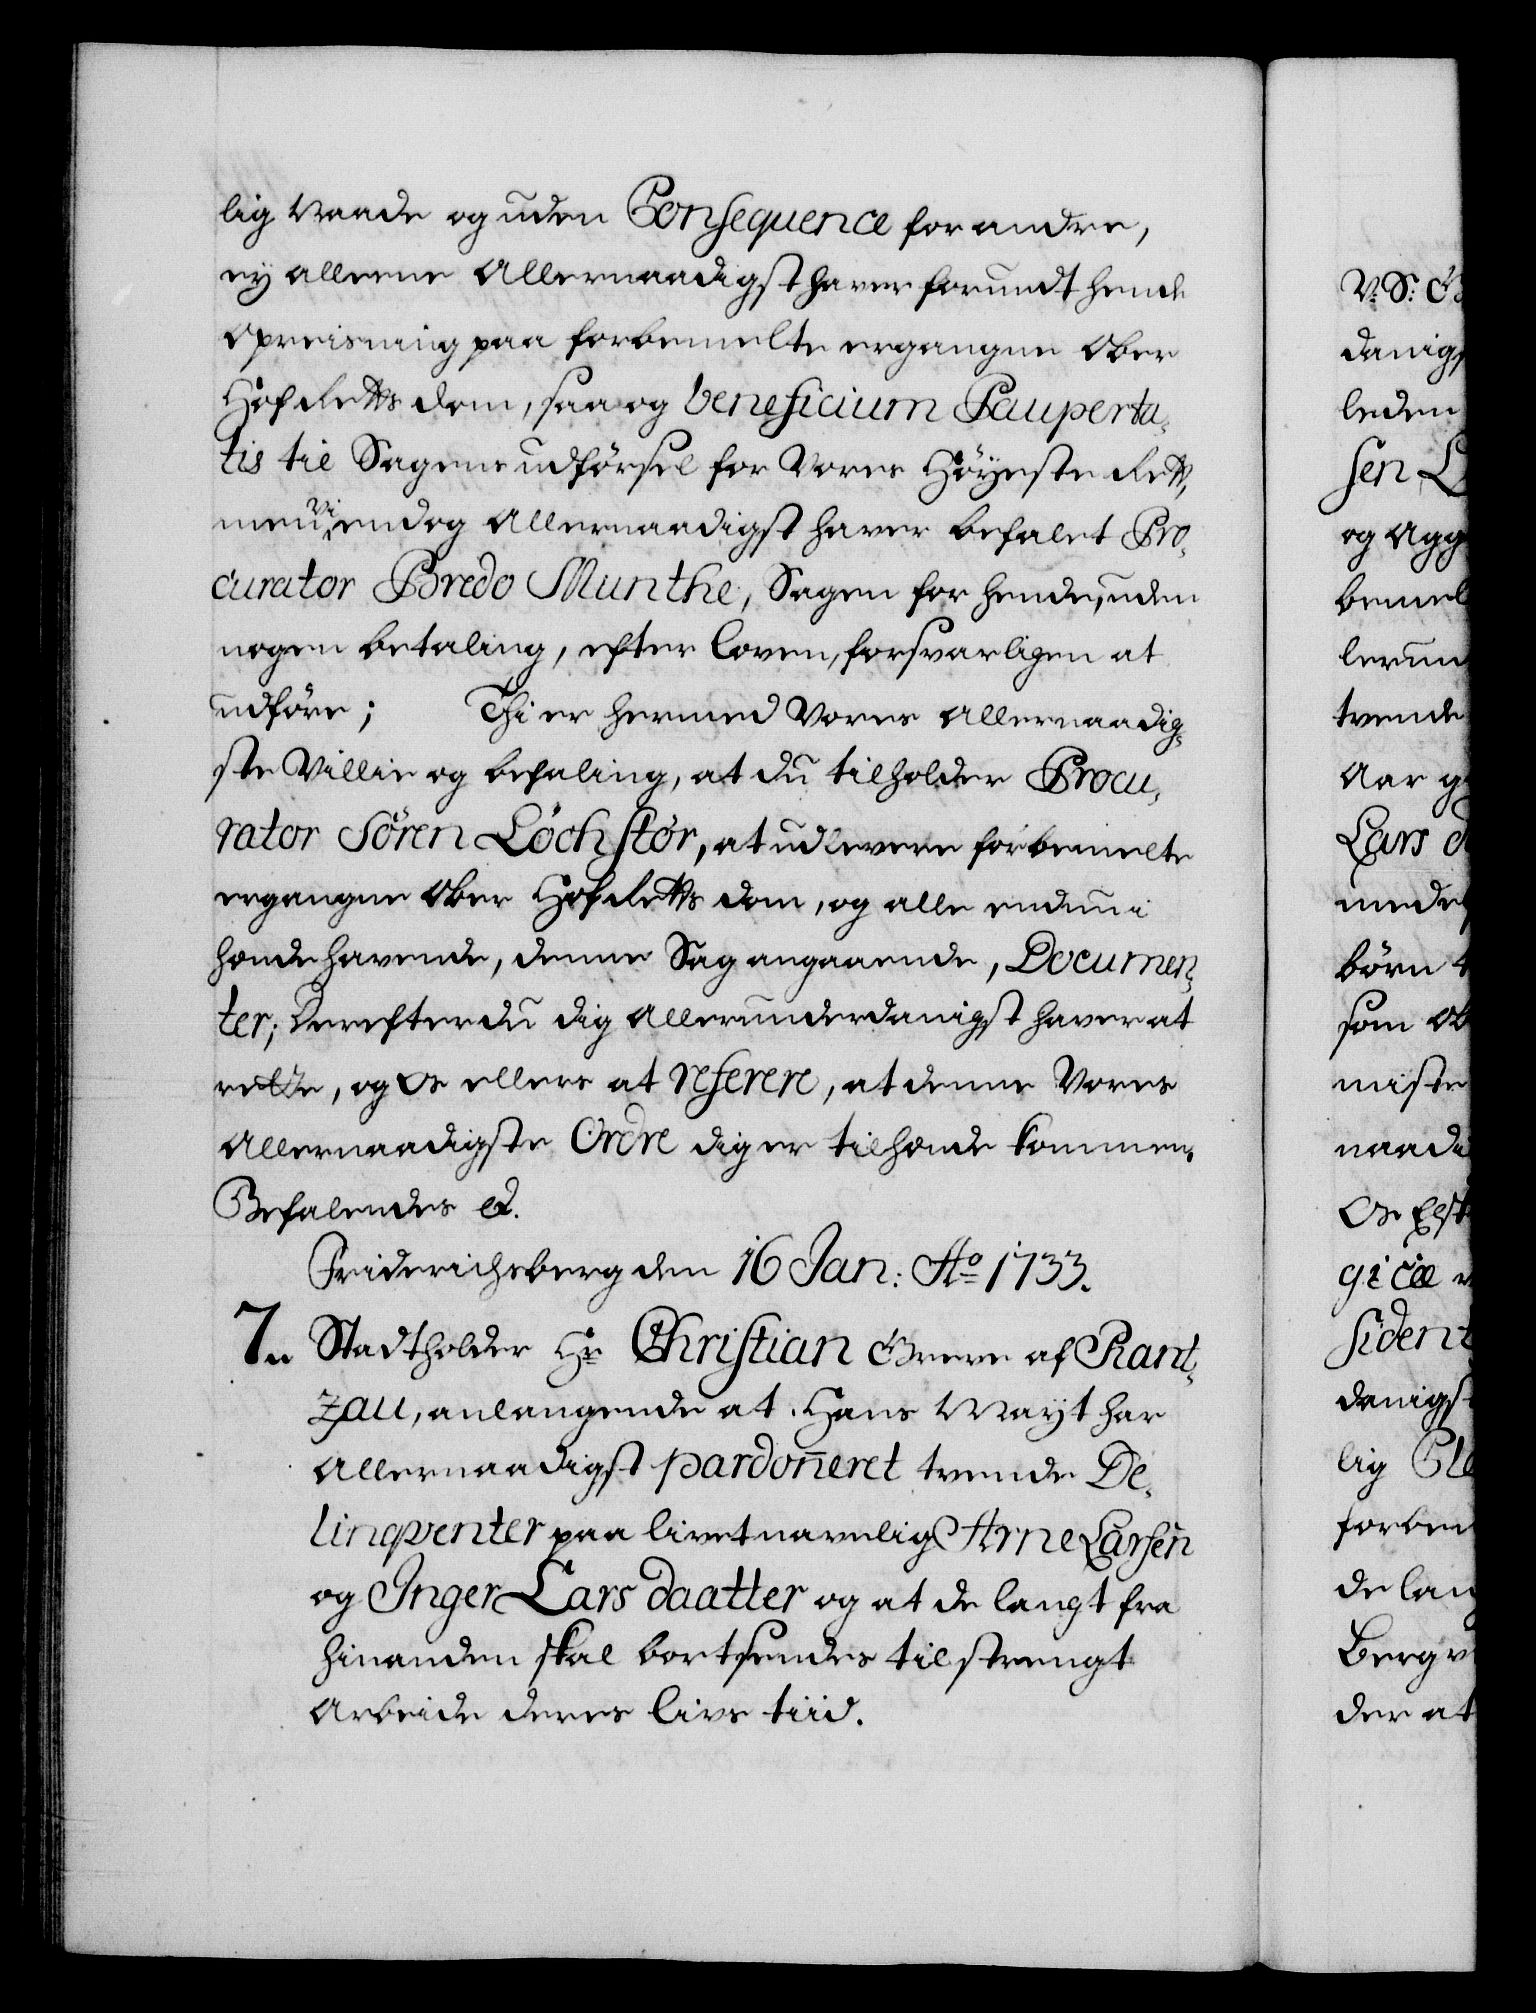 lig Naade og uden Consequence for andre,
ey alleene Allernaadigst haver forundt hende
Opreisning paa forbemelte ergangne Ober
Hof Retts dom, saa og beneficium Pauperta-
tis til Sagens udførsel for Vores Høyeste Rett,
men Vi endog Allernaadigst haver befalet Pro-
curator Bredo Munthe, Sagen for hende, uden
nogen betaling, efter Loven, forsvarligen at
udføre; Thi er hermed Vores Allernaadig-
ste Villie og befaling, at du tilholder Procu-
rator Sören Löchstör, at udlevere forbemelte
ergangne Ober Hof Retts dom, og alle endnu i
hænde havende, denne Sag angaaende, Documen-
ter; Derefter du dig Allerunderdanigst haver at
rette, og Os ellers at referere, at denne Vores
Allernaadigste Ordre dig er tilhænde kommen.
Befalendes etc.
Friderichsberg den 16 Jan: Ao 1733.
7. Stadtholder Hr Christian Greve af Rant-
zau, anlangende at Hans Mayt har
Allernaadigst pardonneret tvende De-
linqventer paa livet navnlig Arne Larsen
og Inger Lars daatter og at de langt fra
hinanden skal bortsendes til strengt
Arbeide deres Livs tiid.
V: S: G
danigs
leden
sen L
og Agg
bemel
lerun
tvende
Aar g
Lars d
med
børn
som Ob
miste
naad
Os
gicæ
sident
danigst
lig Cle
forbem
de lan
Bergv
der at